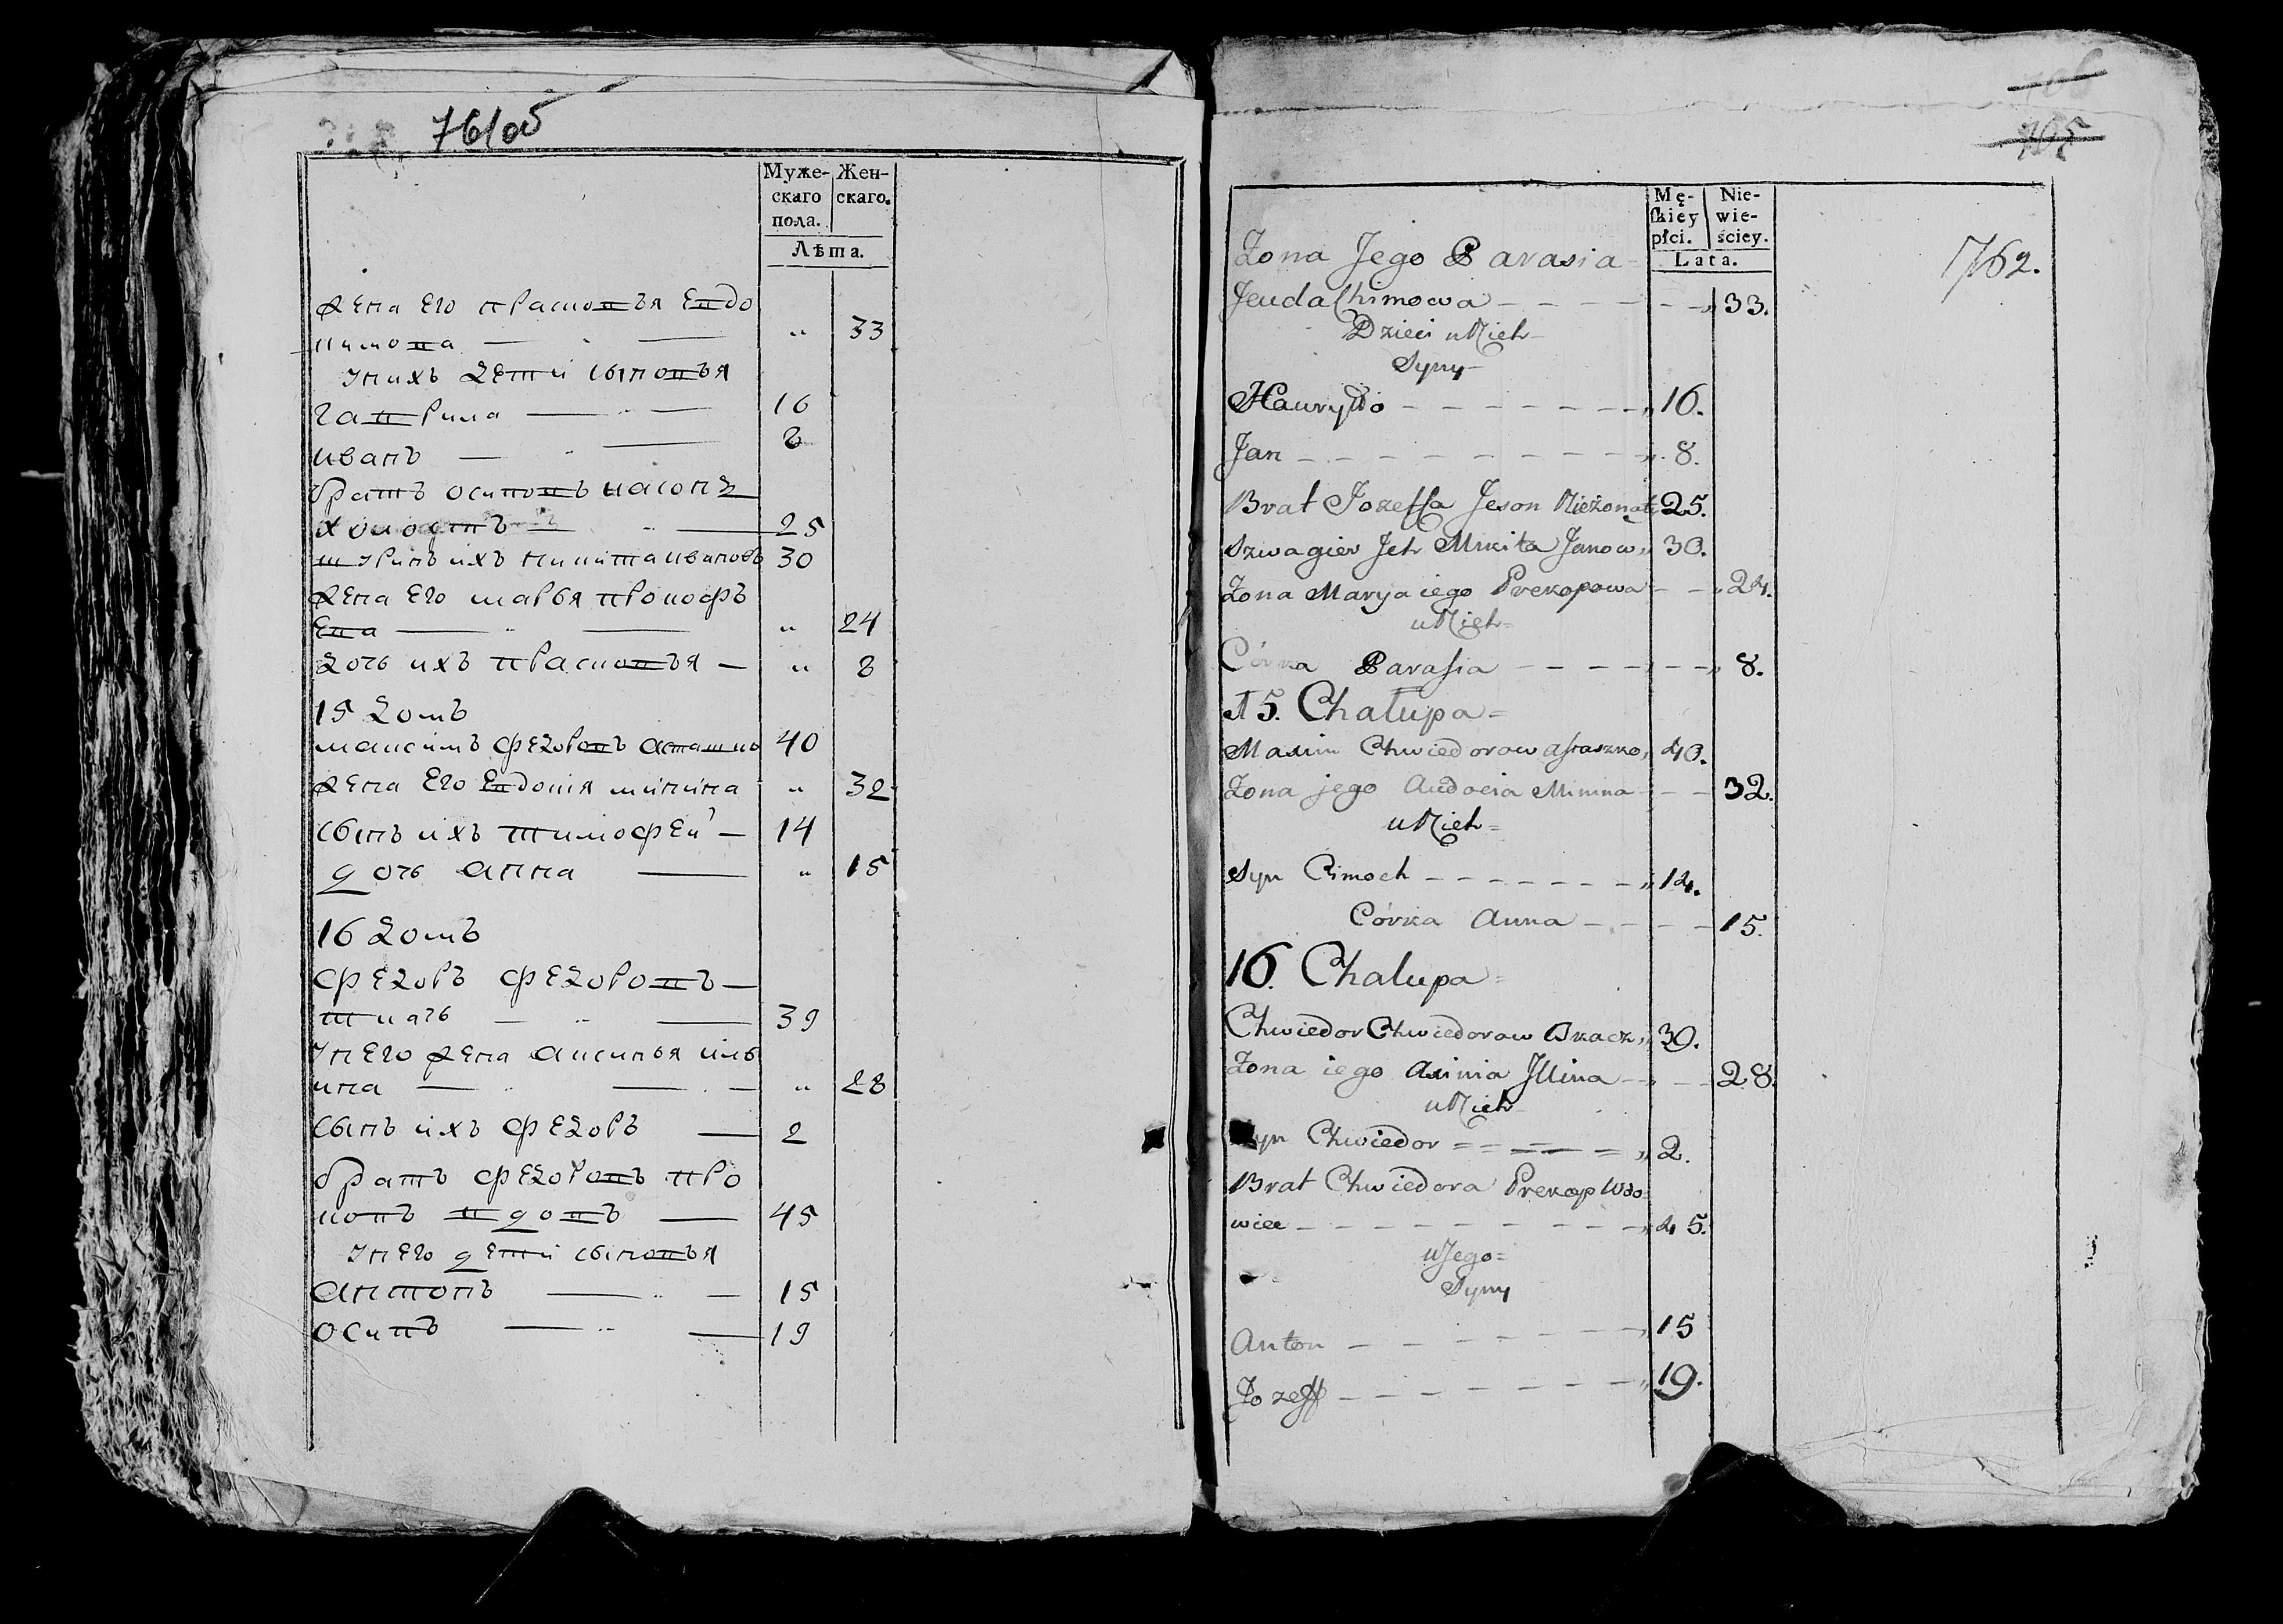 761об
Муже-
скаго
пола.
Жен-
скаго.
Лѣта.
жена его прасковья Евдо
кимова 33
у нихъ дети сыновья
гаврила 16
иванъ 8
братъ осиповъ иасонъ
холостъ 25
шуринъ ихъ никита ивановъ 30
жена его марья прокофь
ева 24
дочь ихъ прасковья 8
15 домъ
максимъ федоровъ асташко 40
жена его Евдокия минина 32
сынъ ихъ тимофей 14
дочь анна 15
16 домъ
федоръ федоровъ
ткачь 39
у него жена аксинья иль
ина 28
сынъ ихъ федоръ 2
братъ федоровъ про
копъ вдовъ 45
у него дети сыновья
антонъ 15
осипъ 19
765
Mę-
skiey
płci.
Nie-
wie-
ściey.
Lata.
1762.
Żona Jego Parasia
Jeudachimowa 33.
Dzieci u Nich
Syny
Hauryło 16.
Jan 8.
Brat Jozeffa Jeson Nieżonaty 25.
Szwagier Jch Mikita Janow 30.
Żona Marya iego Prekopowa 24.
u Nich
Córka Parasia 8.
15. Chałupa
Maxim Chwiedorow Astaszko 40.
Żona jego Audocia Minina 32.
u Nich
Syn Cimoch 14.
Córka Anna 15.
16. Chałupa
Chwiedor Chwiedorow Tkacz 39.
Żona iego Axinia Jllina 28.
u Nich
Syn Chwiedor 2.
Brat Chwiedora Prekop Wdo
wiec 45.
u Jego
Syny
Anton 15
Jozeff 19.